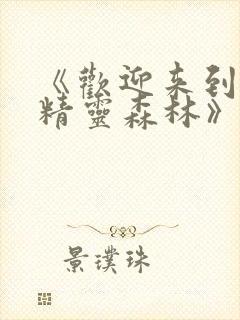 《歡迎来到
精靈森林》
景璞珠